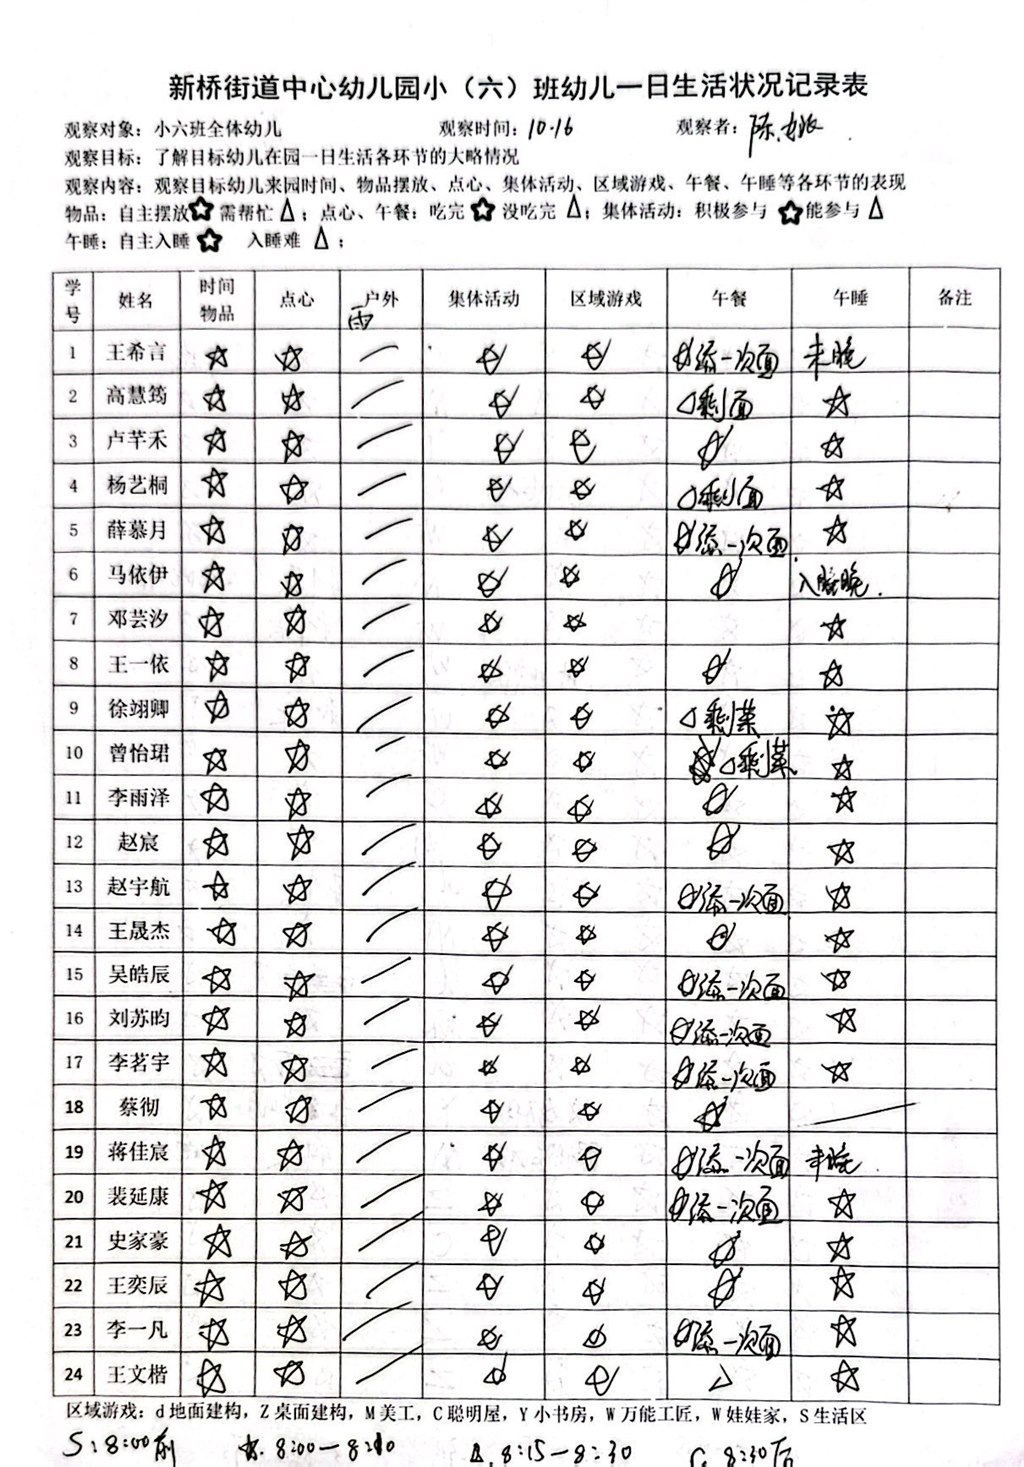 新桥街道中心幼儿园小（六）班幼儿一日生活状况记录表
观察对象：小六班全体幼儿 观察时间：10.16 观察者：陈
观察目标：了解目标幼儿在园一日生活各环节的大略情况
观察内容：观察目标幼儿来园时间、物品摆放、点心、集体活动、区域游戏、午餐、午睡等各环节的表现
物品：自主摆放☆需帮忙△；点心、午餐：吃完☆没吃完△；集体活动：积极参与☆能参与△
午睡：自主入睡☆ 入睡难△；
学号 姓名 时间物品 点心 户外 雨 集体活动 区域游戏 午餐 午睡 备注
1 王希言 ☆ ☆ ☆ ☆ ☆添一次面 未睡
2 高慧筠 ☆ ☆ ☆ ☆ △剩面 ☆
3 卢芊禾 ☆ ☆ ☆ ☆ ☆ ☆
4 杨艺桐 ☆ ☆ ☆ ☆ △剩面 ☆
5 薛慕月 ☆ ☆ ☆ ☆ ☆添一次面 ☆
6 马依伊 ☆ ☆ ☆ ☆ ☆ 入睡晚.
7 邓芸汐 ☆ ☆ ☆ ☆ ☆
8 王一依 ☆ ☆ ☆ ☆ ☆ ☆
9 徐翊卿 ☆ ☆ ☆ ☆ △剩菜 ☆
10 曾怡珺 ☆ ☆ ☆ ☆ △剩菜 ☆
11 李雨泽 ☆ ☆ ☆ ☆ ☆ ☆
12 赵宸 ☆ ☆ ☆ ☆ ☆ ☆
13 赵宇航 ☆ ☆ ☆ ☆ ☆添一次面 ☆
14 王晟杰 ☆ ☆ ☆ ☆ ☆ ☆
15 吴皓辰 ☆ ☆ ☆ ☆ ☆添一次面 ☆
16 刘苏昀 ☆ ☆ ☆ ☆ ☆添一次面 ☆
17 李茗宇 ☆ ☆ ☆ ☆ ☆添一次面 ☆
18 蔡彻 ☆ ☆ ☆ ☆ ☆
19 蒋佳宸 ☆ ☆ ☆ ☆ ☆添一次面 未睡
20 裴延康 ☆ ☆ ☆ ☆ ☆添一次面 ☆
21 史家豪 ☆ ☆ ☆ ☆ ☆ ☆
22 王奕辰 ☆ ☆ ☆ ☆ ☆ ☆
23 李一凡 ☆ ☆ ☆ ☆ ☆添一次面 ☆
24 王文楷 ☆ ☆ ☆ ☆ △ ☆
区域游戏：d地面建构，Z桌面建构，M美工，C聪明屋，Y小书房，W万能工匠，W娃娃家，S生活区
S：8:00前 ☆. 8:00—8:10 △. 8:15—8:30 C. 8:30后